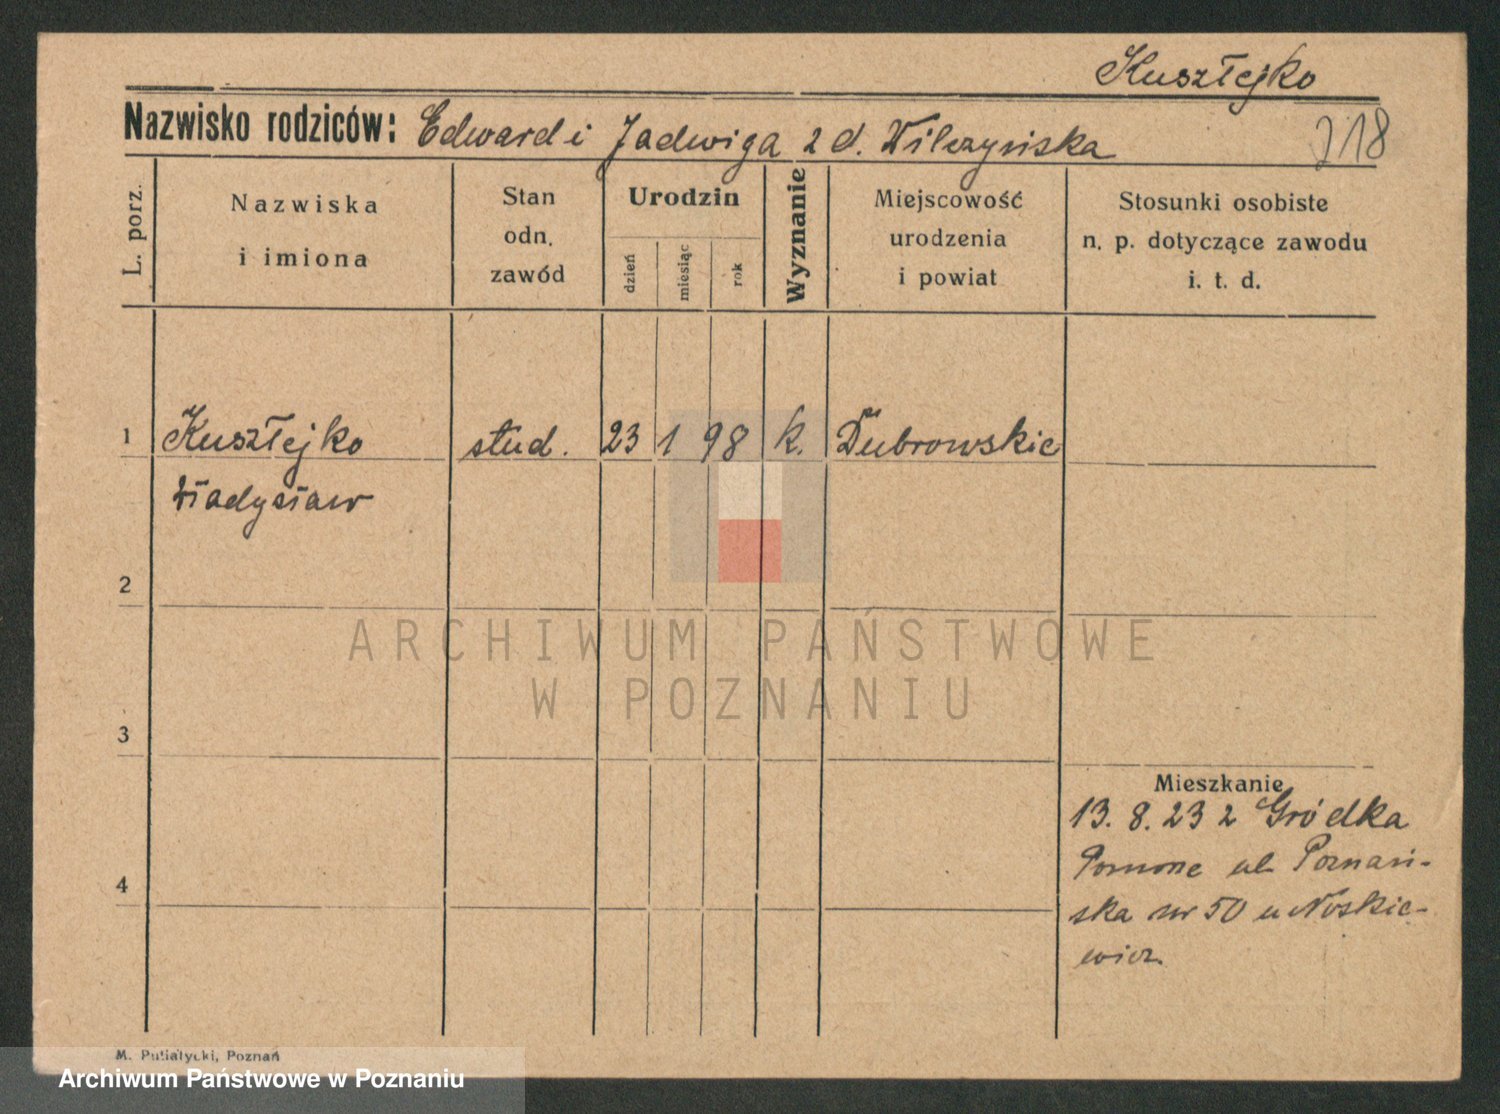 Kuszłejko
Nazwisko rodziców: Edward i Jadwiga z d. Wilczyńska
318
L. porz.
Nazwiska
i imiona
Stan
odn.
zawód
Urodzin
dzień
miesiąc
rok
Wyznanie
Miejscowość
urodzenia
i powiat
Stosunki osobiste
n. p. dotyczące zawodu
i. t. d.
1 Kuszłejko stud. 23 1 98 k. Dubrowskie
Władysław
2
ARCHIWUM PAŃSTWOWE
W POZNANIU
3
Mieszkanie
13. 8. 23 z Gródka
Pomorze ul. Poznań-
4
ska nr 50 u Noskie-
wicz.
M. Putiatycki, Poznań
Archiwum Państwowe w Poznaniu